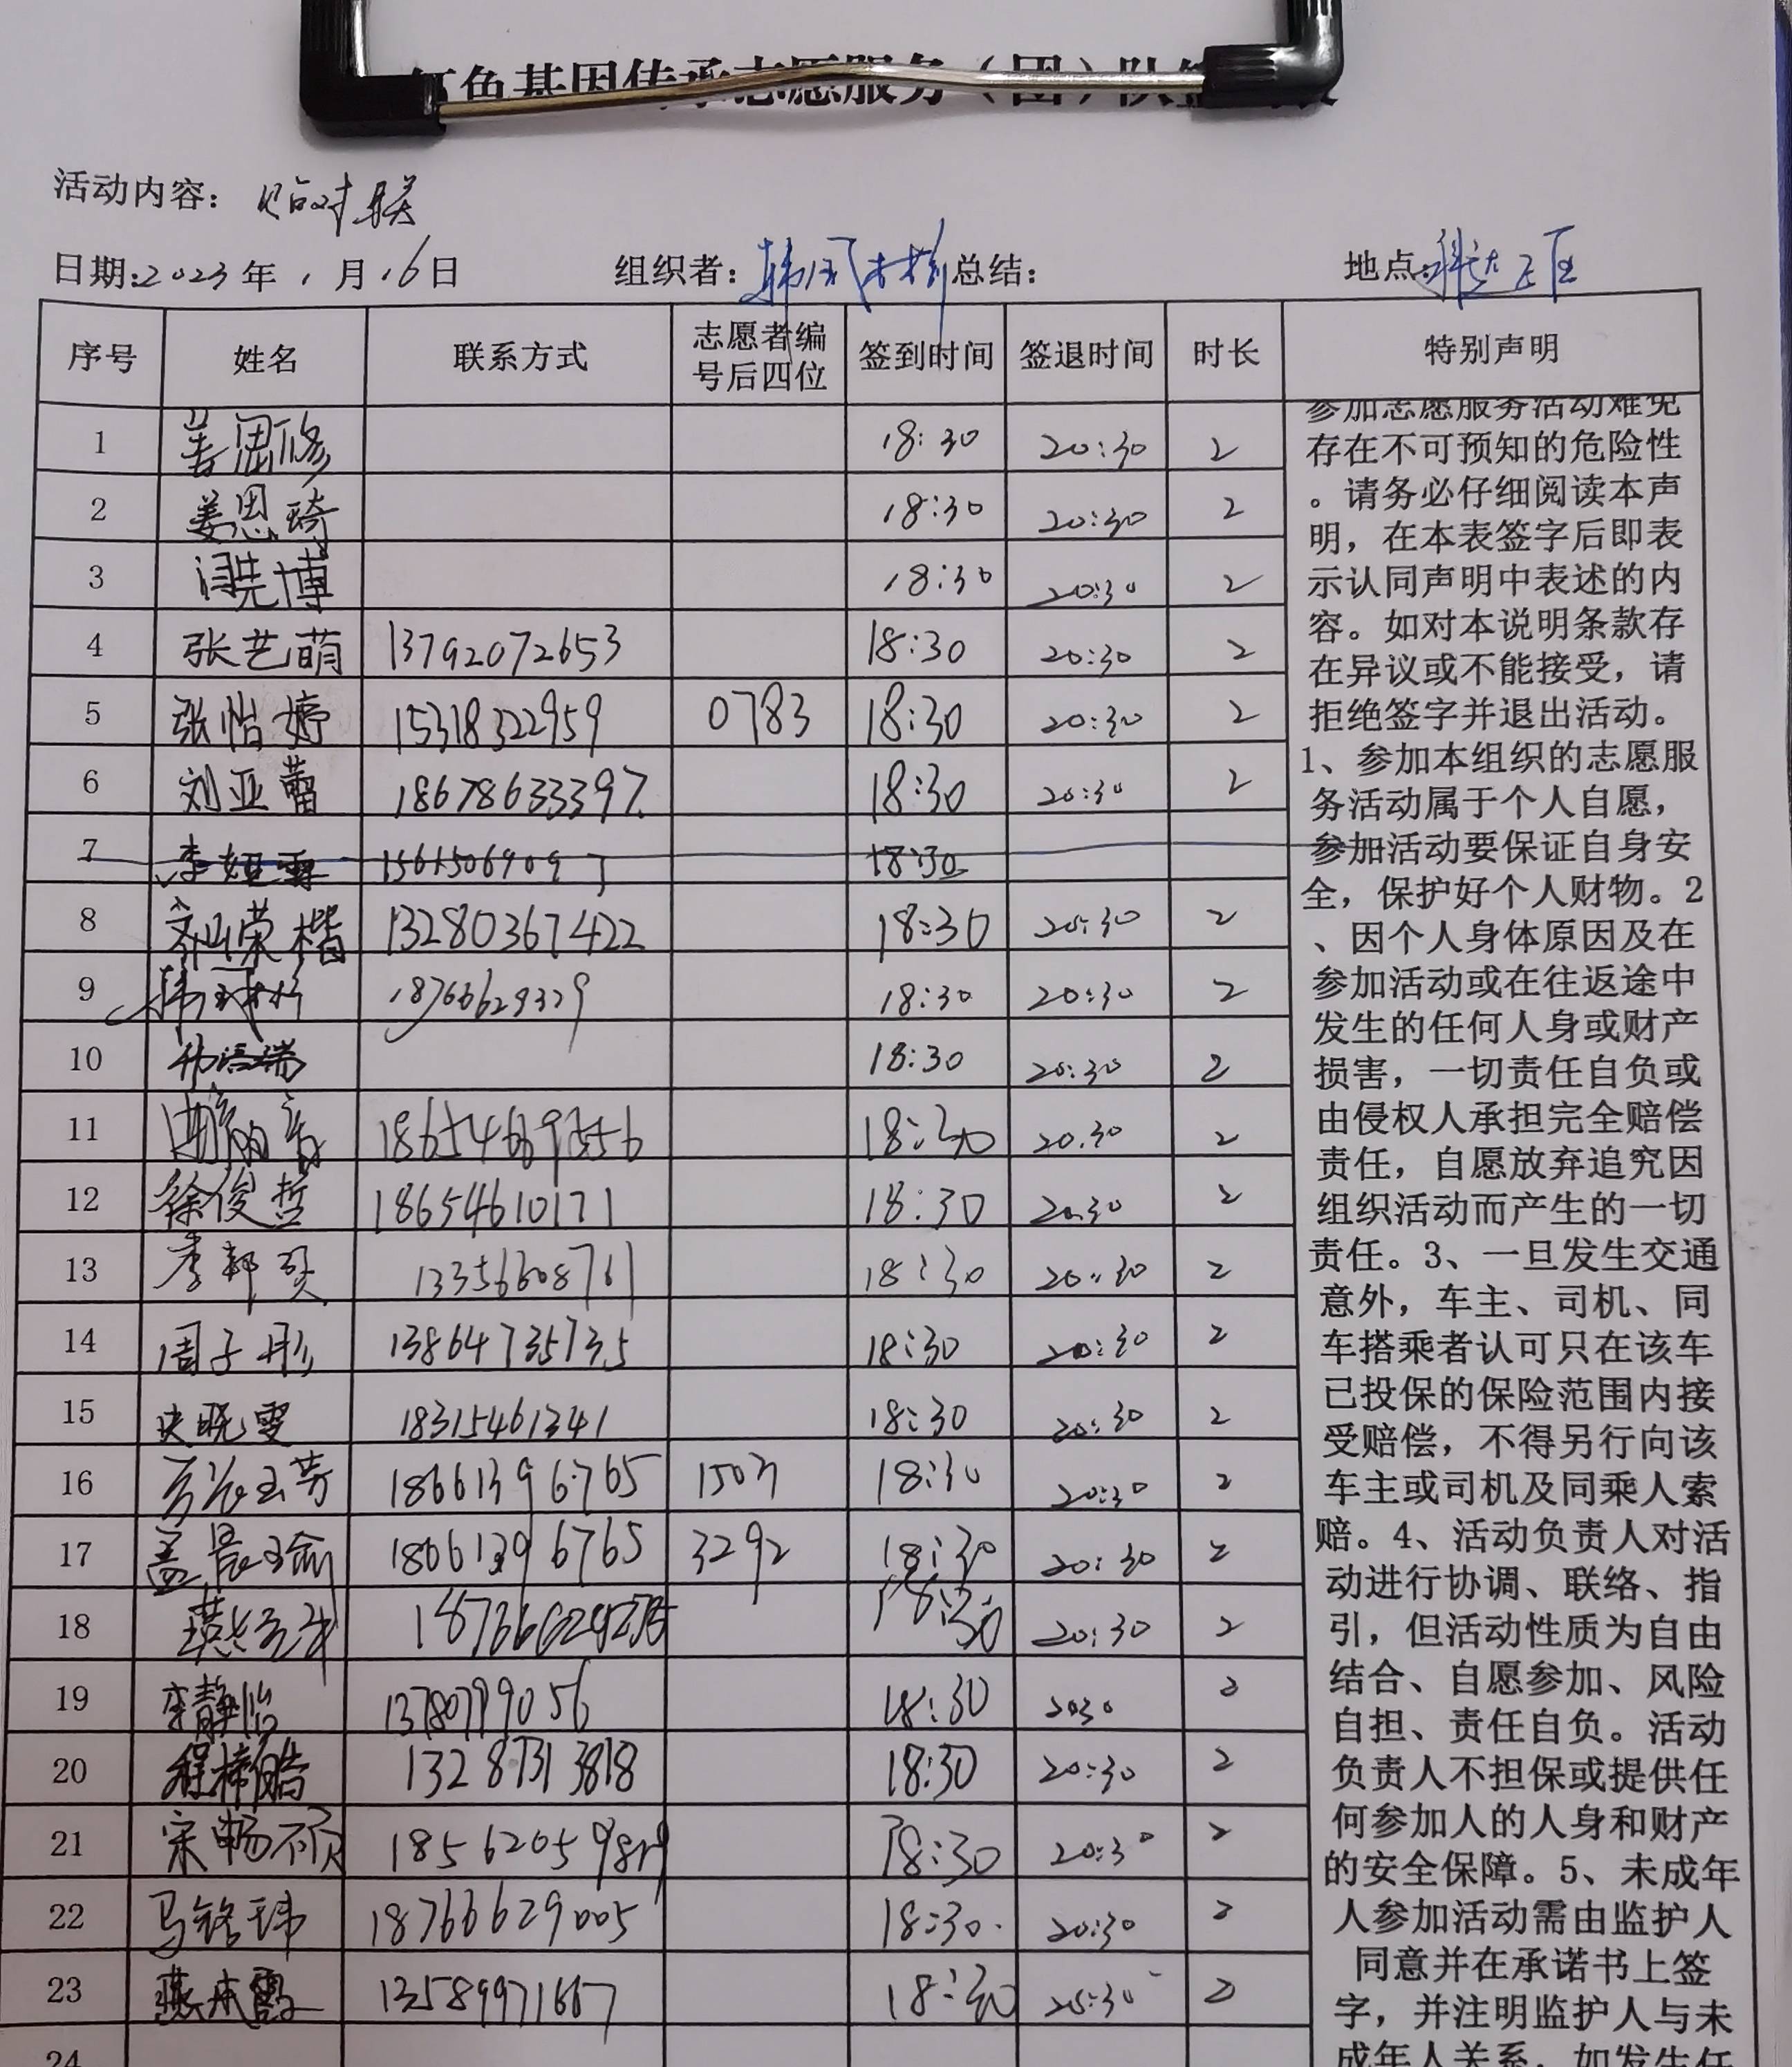 色基因传承志愿服务（团）队
活动内容：贴对联
日期:2023年1月16日 组织者： 总结： 地点:
序号 姓名 联系方式 志愿者编号后四位 签到时间 签退时间 时长 特别声明
1 姜思修 18:30 20:30 2
2 姜思琦 18:30 20:30 2
3 闫先博 18:30 20:30 2
4 张艺萌 13792072653 18:30 20:30 2
5 张怡婷 15318322959 0783 18:30 20:30 2
6 刘亚蕾 18678633397 18:30 20:30 2
7 18:30
8 荣楷 13280367422 18:30 20:30 2
9 18766629329 18:30 20:30 2
10 18:30 20:30 2
11 18:30 20.30 2
12 徐俊哲 18654610171 18:30 20.30 2
13 13356608761 18:30 20:30 2
14 周子彤 13864735735 18:30 20:30 2
15 史晓雯 18315461341 18:30 20:30 2
16 18661396765 1503 18:30 20:30 2
17 盖晨瑜 18661396765 3292 18:30 20:30 2
18 18:30 20:30 2
19 李静怡 13780799056 18:30 2030 2
20 程梓皓 13287313818 18:30 20:30 2
21 宋畅 18:30 20:30 2
22 马铭玮 18766629005 18:30 20:30 2
23 13589971667 18:30 20:30 2
24
参加志愿服务活动难免
存在不可预知的危险性
。请务必仔细阅读本声
明，在本表签字后即表
示认同声明中表述的内
容。如对本说明条款存
在异议或不能接受，请
拒绝签字并退出活动。
1、参加本组织的志愿服
务活动属于个人自愿，
参加活动要保证自身安
全，保护好个人财物。2
、因个人身体原因及在
参加活动或在往返途中
发生的任何人身或财产
损害，一切责任自负或
由侵权人承担完全赔偿
责任，自愿放弃追究因
组织活动而产生的一切
责任。3、一旦发生交通
意外，车主、司机、同
车搭乘者认可只在该车
已投保的保险范围内接
受赔偿，不得另行向该
车主或司机及同乘人索
赔。4、活动负责人对活
动进行协调、联络、指
引，但活动性质为自由
结合、自愿参加、风险
自担、责任自负。活动
负责人不担保或提供任
何参加人的人身和财产
的安全保障。5、未成年
人参加活动需由监护人
同意并在承诺书上签
字，并注明监护人与未
成年人关系，如发生任